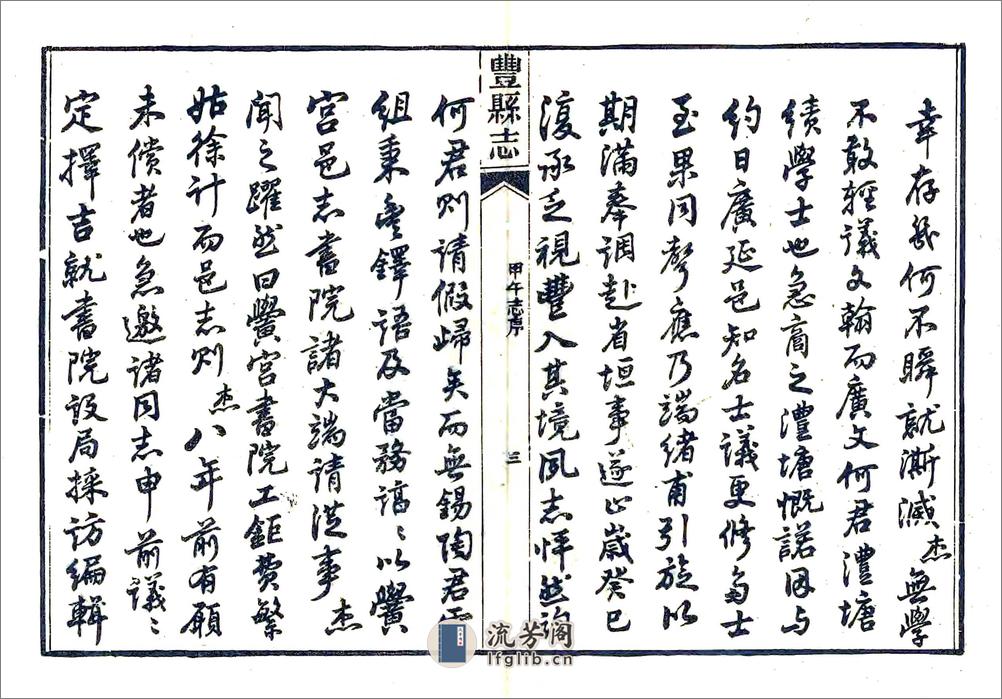 幸存幾何不瞬就澌滅杰無學
不敢輕議文翰而廣文何君澧塘
績學士也急商之澧塘慨諾因与
約日廣延邑知名士議更修多士
至果同聲應乃端緒甫引旋以
期滿奉調赴省垣事遂止歲癸巳
復承乏視豐入其境夙志怦然詢
豐縣志
甲午志序
三
何君則請假歸矣而無錫陶君
組秉鐸語及當務諄〻以黌
宮邑志書院諸大端請從事杰
聞之躍然曰黌宮書院工鉅費繁
姑徐計而邑志則杰八年前有願
未償者也急邀諸同志申前議〻
定擇吉就書院設局採訪編輯
流芳阁
lfglib.cn